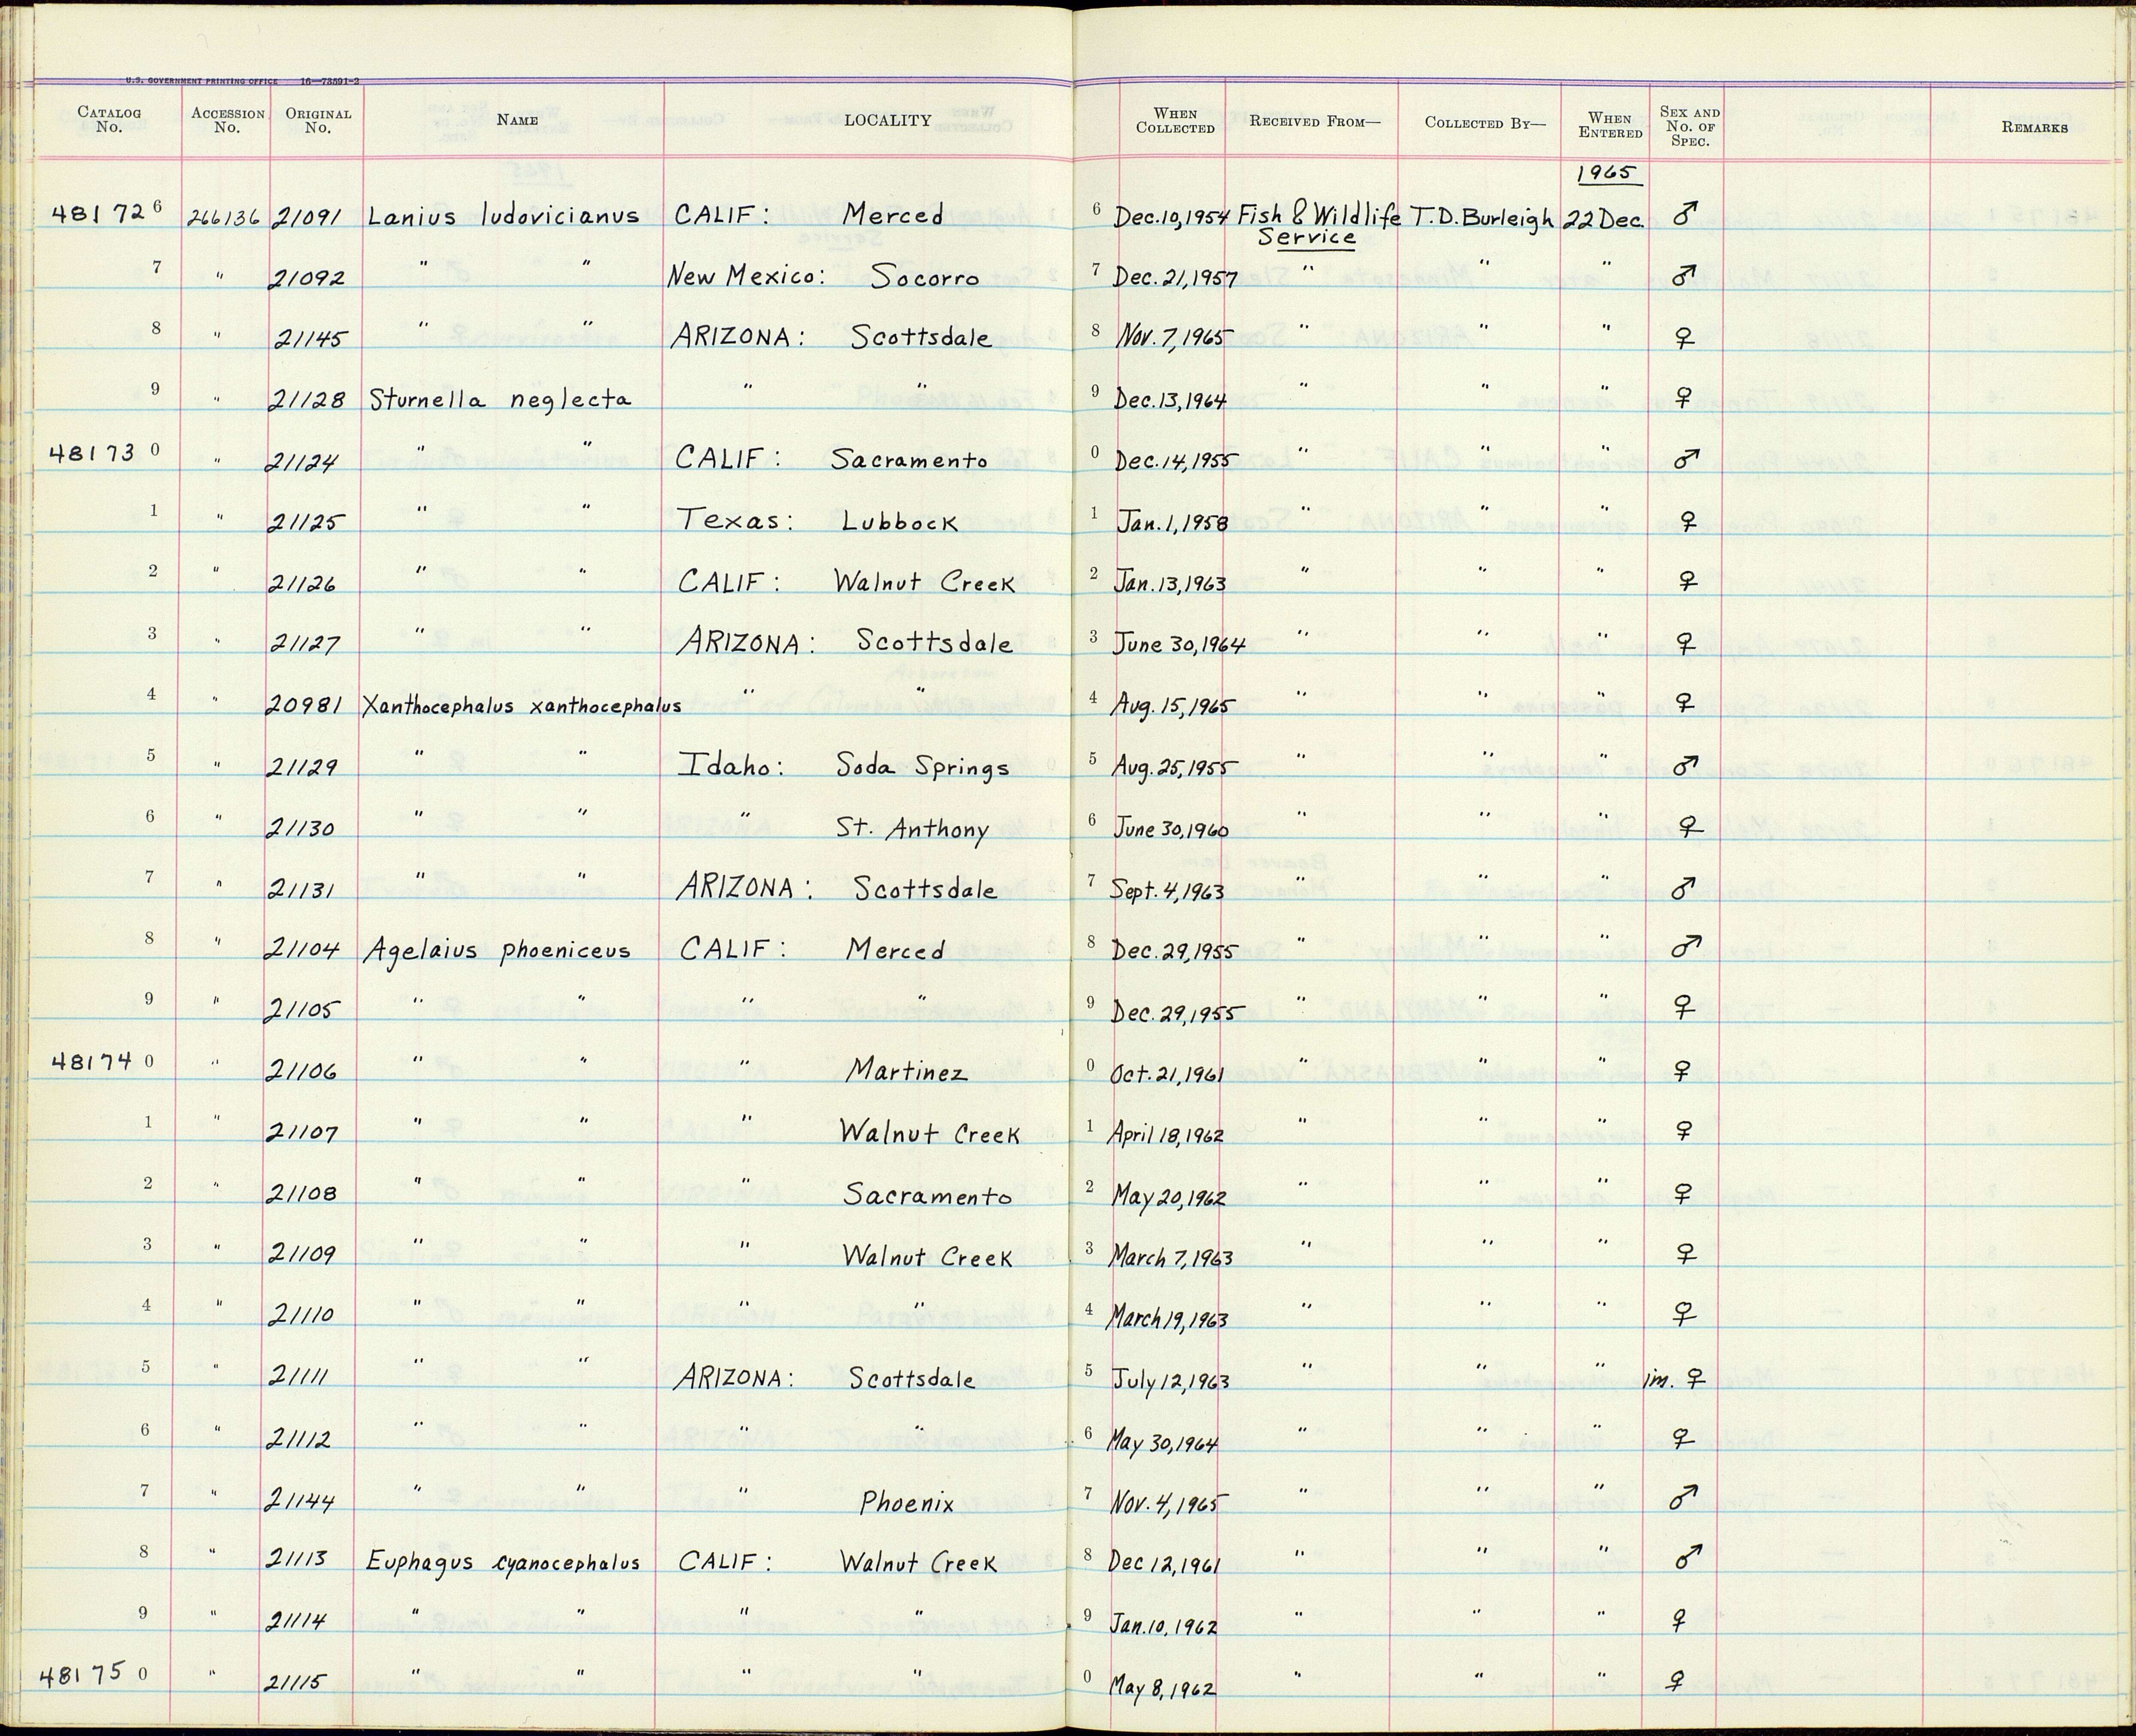 U.S. GOVERNMENT PRINTING OFFICE 16—73591-2
CATALOG No. ACCESSION No. ORIGINAL No. NAME LOCALITY WHEN COLLECTED RECEIVED FROM— COLLECTED BY— WHEN ENTERED SEX AND No. OF SPEC. REMARKS
1965
481726 266136 21091 Lanius ludovicianus CALIF: Merced 6 Dec.10,1954 Fish & Wildlife Service T.D.Burleigh 22 Dec. ♂
7 " 21092 " " New Mexico: Socorro 7 Dec.21,1957 " " " ♂
8 " 21145 " " ARIZONA: Scottsdale 8 Nov.7,1965 " " " ♀
9 " 21128 Sturnella neglecta " " 9 Dec.13,1964 " " " ♀
481730 " 21124 " " CALIF: Sacramento 0 Dec.14,1955 " " " ♂
1 " 21125 " " Texas: Lubbock 1 Jan.1,1958 " " " ♀
2 " 21126 " " CALIF: Walnut Creek 2 Jan.13,1963 " " " ♀
3 " 21127 " " ARIZONA: Scottsdale 3 June 30,1964 " " " ♀
4 " 20981 Xanthocephalus xanthocephalus " " 4 Aug.15,1965 " " " ♀
5 " 21129 " " Idaho: Soda Springs 5 Aug.25,1955 " " " ♂
6 " 21130 " " " St. Anthony 6 June 30,1960 " " " ♀
7 " 21131 " " ARIZONA: Scottsdale 7 Sept.4,1963 " " " ♂
8 " 21104 Agelaius phoeniceus CALIF: Merced 8 Dec.29,1955 " " " ♂
9 " 21105 " " " " 9 Dec.29,1955 " " " ♀
481740 " 21106 " " " Martinez 0 Oct.21,1961 " " " ♀
1 " 21107 " " " Walnut Creek 1 April 18,1962 " " " ♀
2 " 21108 " " " Sacramento 2 May 20,1962 " " " ♀
3 " 21109 " " " Walnut Creek 3 March 7,1963 " " " ♀
4 " 21110 " " " " 4 March 19,1963 " " " ♀
5 " 21111 " " ARIZONA: Scottsdale 5 July 12,1963 " " " im. ♀
6 " 21112 " " " " 6 May 30,1964 " " " ♀
7 " 21144 " " " Phoenix 7 Nov.4,1965 " " " ♂
8 " 21113 Euphagus cyanocephalus CALIF: Walnut Creek 8 Dec 12,1961 " " " ♂
9 " 21114 " " " " 9 Jan.10,1962 " " " ♀
481750 " 21115 " " " " 0 May 8,1962 " " " ♀